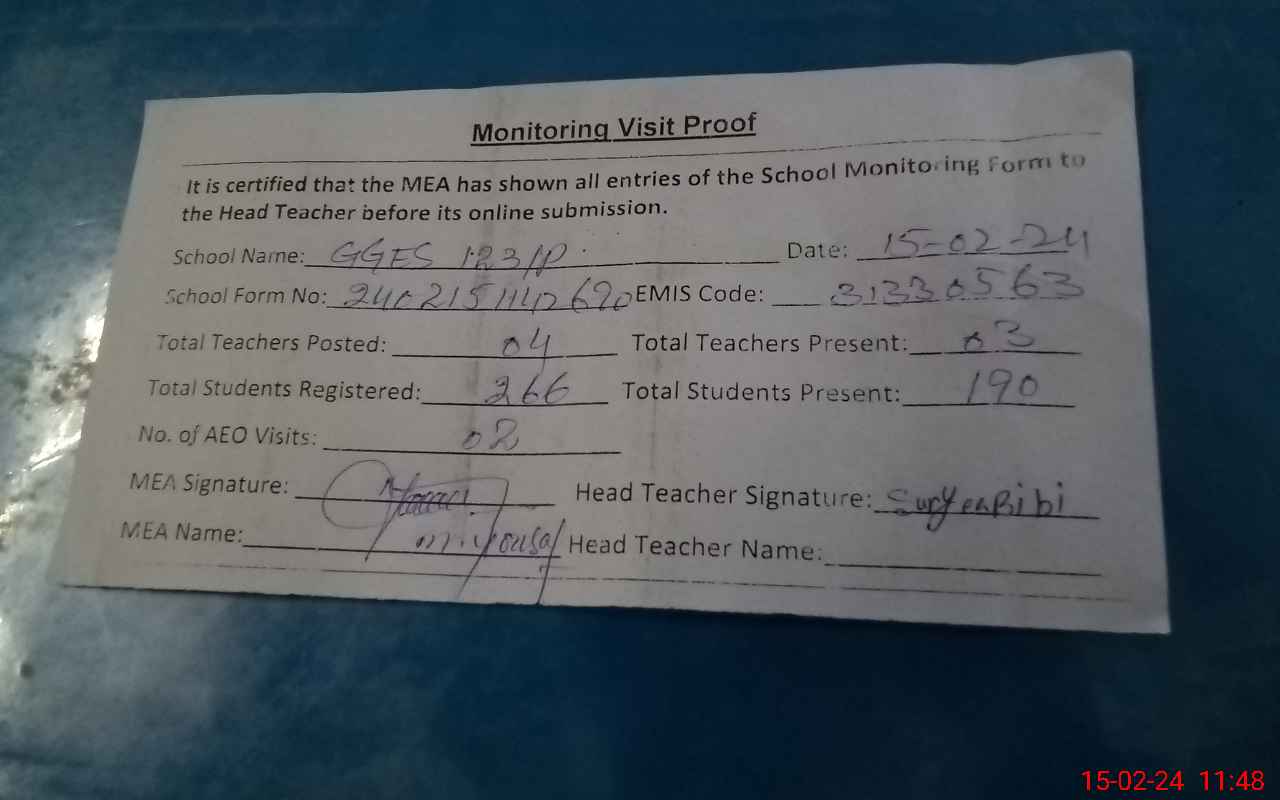 Monitoring Visit Proof
It is certified that the MEA has shown all entries of the School Monitoring Form to
the Head Teacher before its online submission.
School Name: GGES 123/P Date: 15-02-24
School Form No: EMIS Code: 31330563
Total Teachers Posted: 04 Total Teachers Present: 03
Total Students Registered: 266 Total Students Present: 190
No. of AEO Visits: 02
MEA Signature: Head Teacher Signature: Bibi
MEA Name: M. Yousaf Head Teacher Name:
15-02-24 11:48